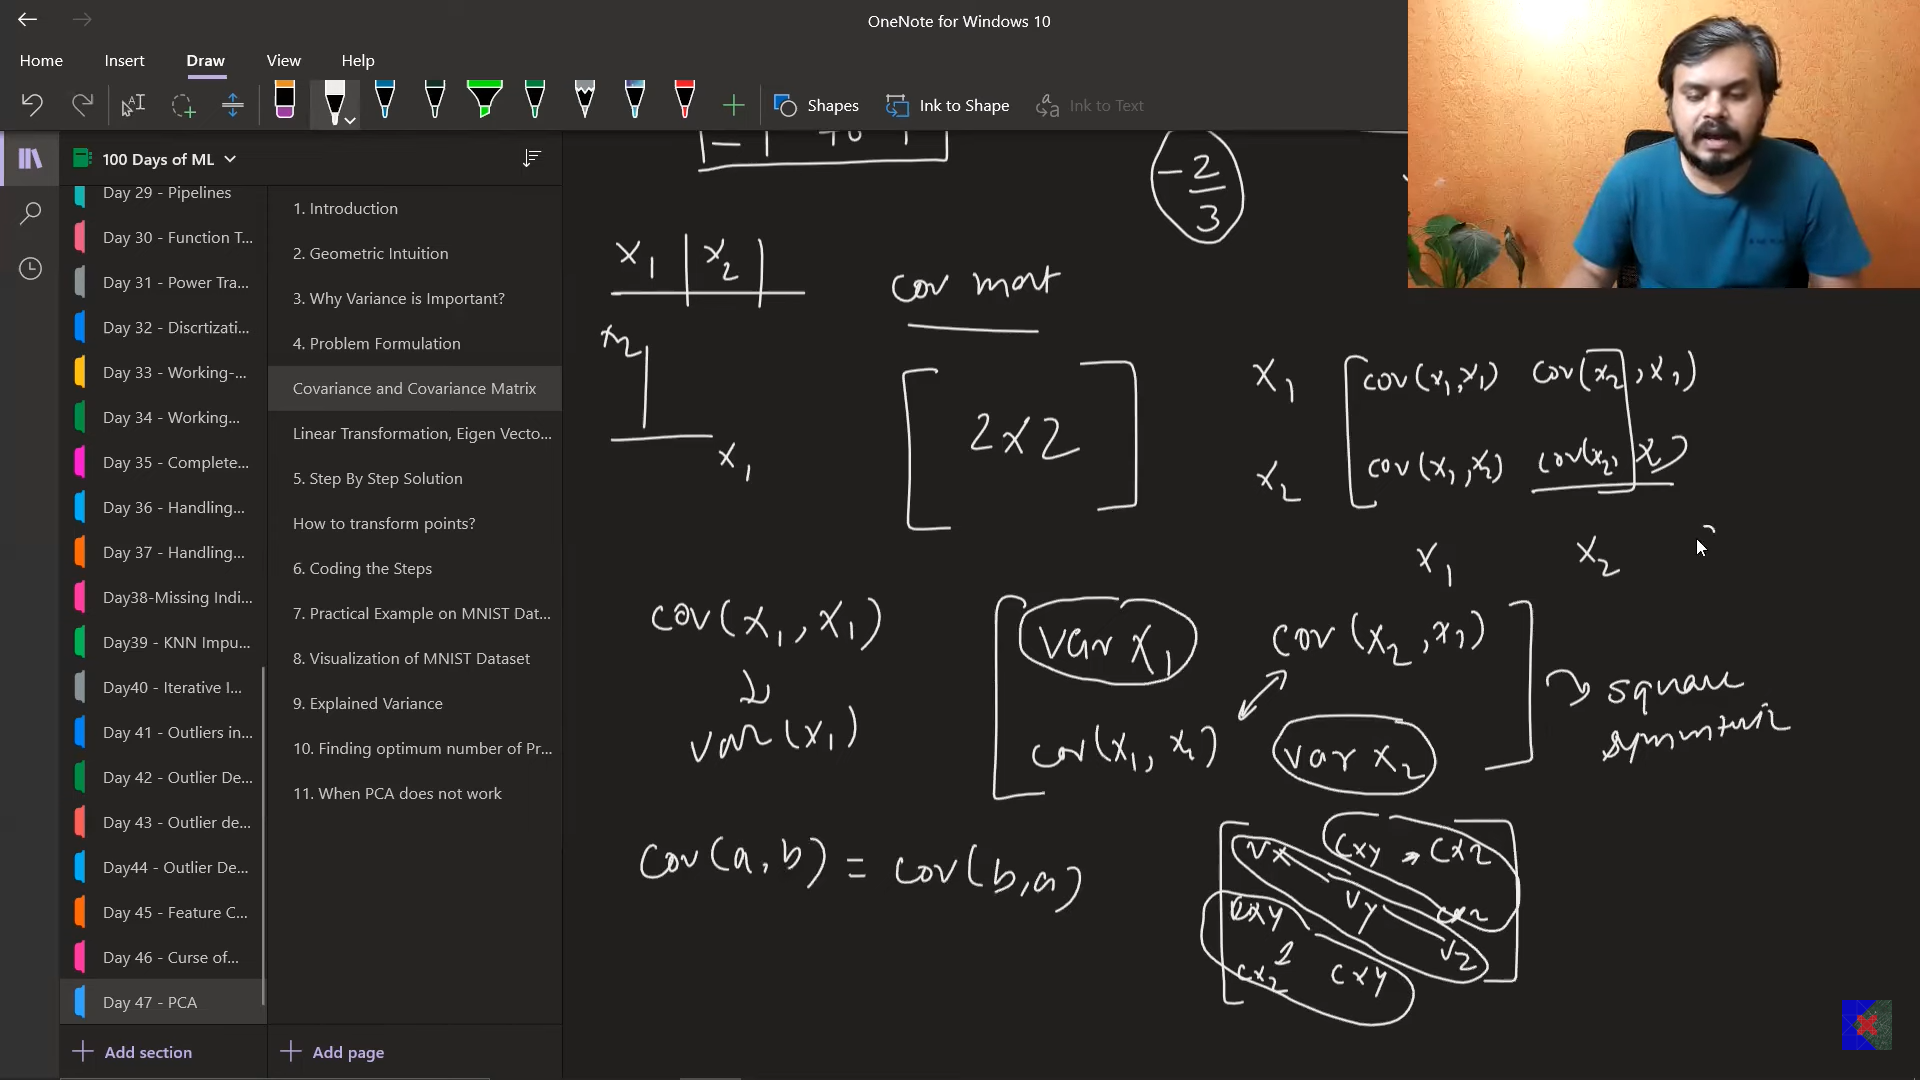 OneNote for Windows 10
Home Insert Draw View Help
Shapes Ink to Shape Ink to Text
100 Days of ML
Day 29 - Pipelines
Day 30 - Function T...
Day 31 - Power Tra...
Day 32 - Discrtizati...
Day 33 - Working-...
Day 34 - Working...
Day 35 - Complete...
Day 36 - Handling...
Day 37 - Handling...
Day38-Missing Indi...
Day39 - KNN Impu...
Day40 - Iterative I...
Day 41 - Outliers in...
Day 42 - Outlier De...
Day 43 - Outlier de...
Day44 - Outlier De...
Day 45 - Feature C...
Day 46 - Curse of...
Day 47 - PCA
Add section
1. Introduction
2. Geometric Intuition
3. Why Variance is Important?
4. Problem Formulation
Covariance and Covariance Matrix
Linear Transformation, Eigen Vecto...
5. Step By Step Solution
How to transform points?
6. Coding the Steps
7. Practical Example on MNIST Dat...
8. Visualization of MNIST Dataset
9. Explained Variance
10. Finding optimum number of Pr...
11. When PCA does not work
Add page
-2/3
x1 | x2 |
cov mat
x2
x1
2x2
x1 cov(x1,x1) cov(x2,x1)
x2 cov(x1,x2) cov(x2,x2)
x1 x2
cov(x1,x1)
var(x1)
var x1 cov(x2,x1)
cov(x1, x2) var x2
square
symmetric
cov(a,b) = cov(b,a)
vx cxy cxz
cxy vy cxz
cxz cxy vz